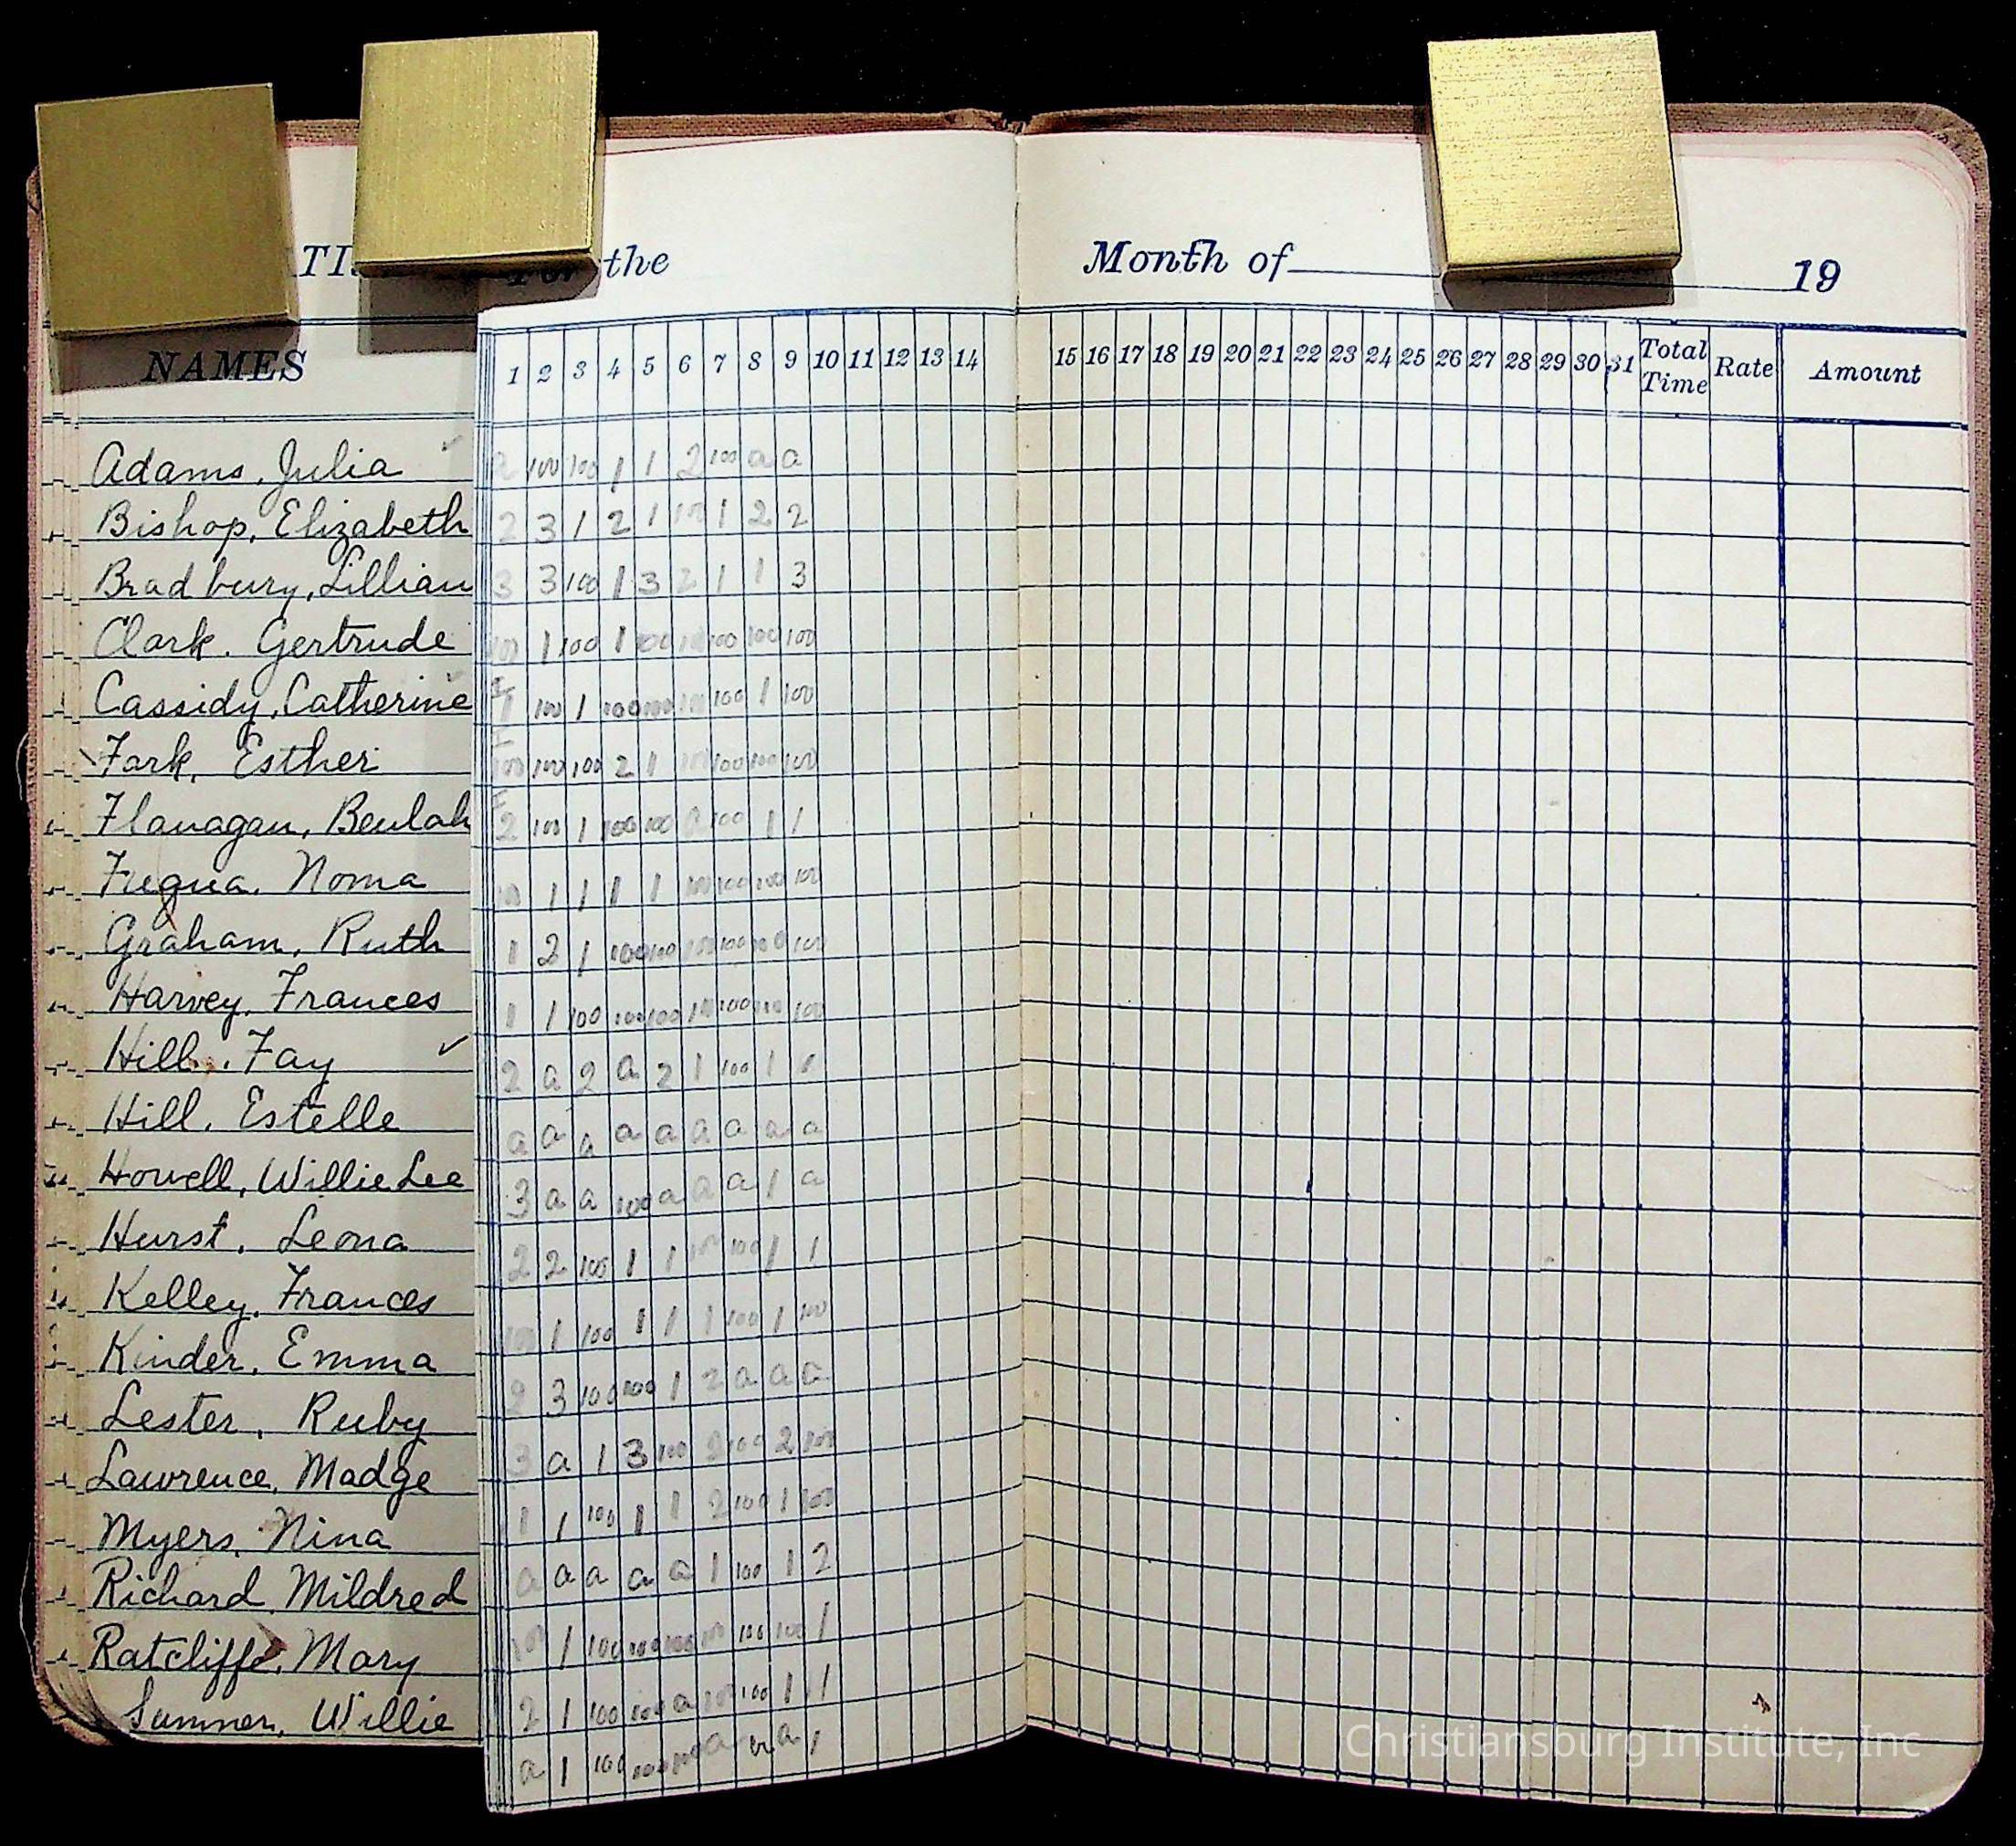 the
Month of 19
NAMES 1 2 3 4 5 6 7 8 9 10 11 12 13 14 15 16 17 18 19 20 21 22 23 24 25 26 27 28 29 30 31 Total Time Rate Amount
Adams, Julia 100 100 1 1 2 100 a a
Bishop, Elizabeth 2 3 1 2 1 100 1 2 2
Bradbury, Lillian 3 3 100 1 3 2 1 1 3
Clark. Gertrude 100 1 100 1 100 100 100 100 100
Cassidy, Catherine 1 100 1 100 100 100 100 1 100
Fark, Esther 100 100 100 2 1 100 100 100 100
Flanagan, Beulah 2 100 1 100 100 100 1 1
Fuqua. Noma 100 1 1 1 1 100 100 100 100
Graham, Ruth 1 2 1 100 100 100 100 100 100
Harvey, Frances 1 1 100 100 100 100 100 100 100
Hill, Fay 2 a 2 a 2 1 100 1 1
Hill, Estelle a a a a a a a a a
Howell, Willie Lee 3 a a 100 a a a 1 a
Hurst, Leona 2 2 100 1 1 100 100 1 1
Kelley, Frances 100 1 100 1 1 1 100 1 100
Kinder, Emma 2 3 100 100 1 2 a a a
Lester, Ruby 3 a 1 3 100 2 100 2 100
Lawrence, Madge 1 1 100 1 1 2 100 1 100
Myers, Nina a a a a a 1 100 1 2
Richard, Mildred 100 1 100 100 100 100 100 100 1
Ratcliffe, Mary 2 1 100 100 a 100 100 1 1
Sumner, Willie a 1 100 100 100 a a 1
Christiansburg Institute, Inc